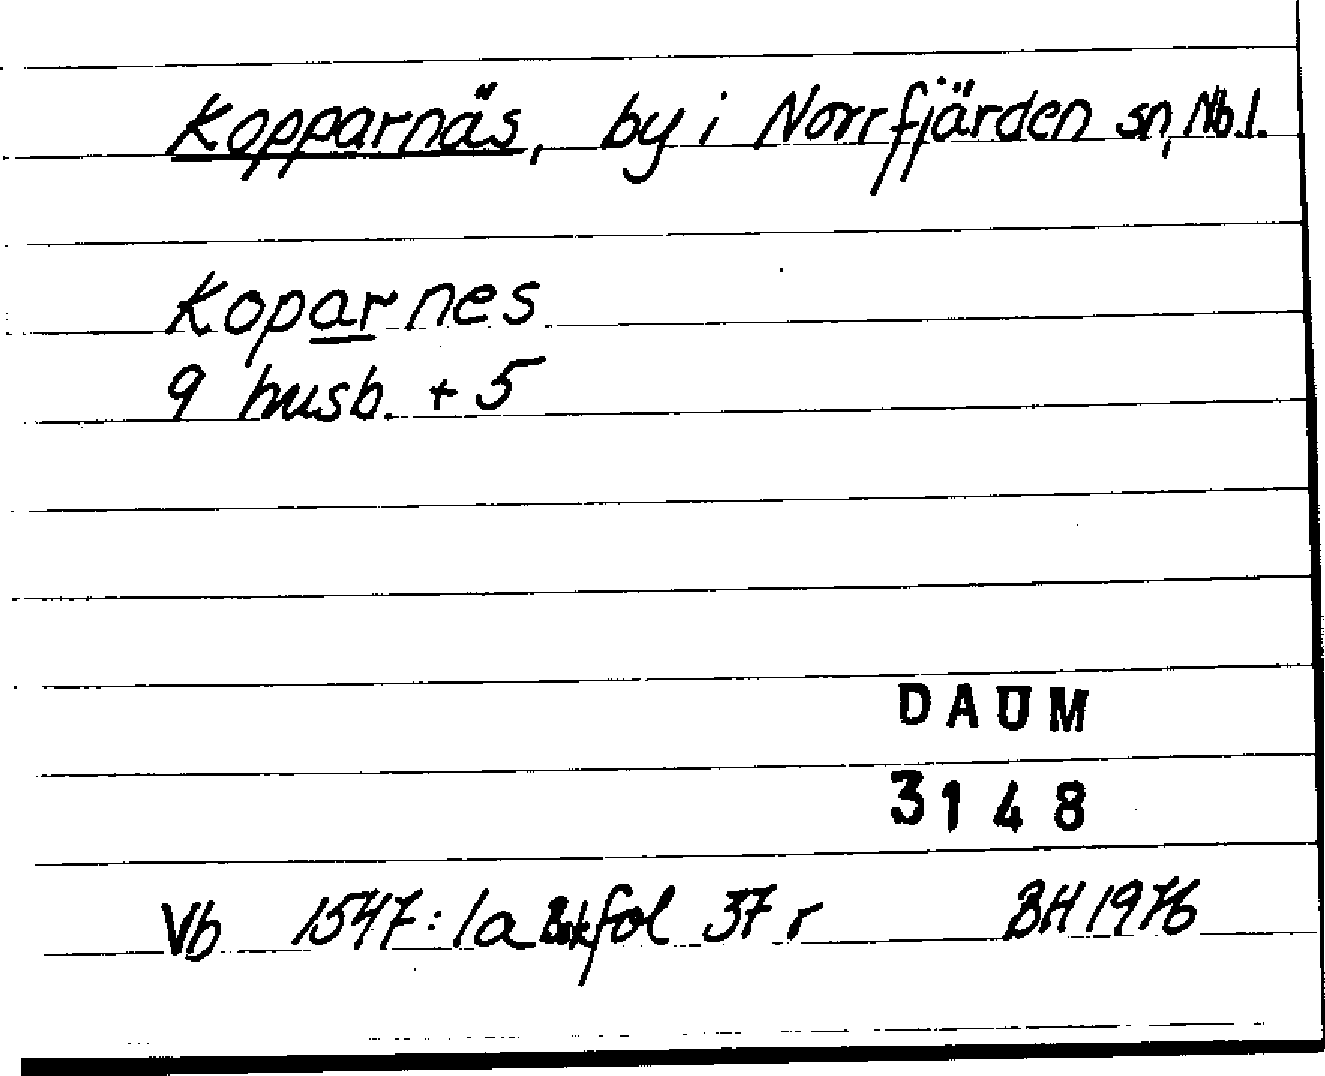 Kopparnäs, by i Norrfjärden sn, Nb.l.
Koparnes
9 husb. + 5
DAUM
3148
Vb 1547:1a Bakfol 37 r BH 1976